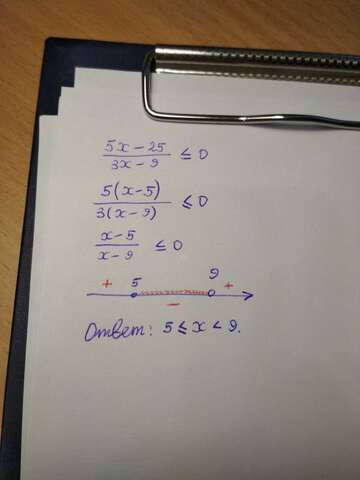 5x - 25 / 3x - 9 ≤ 0
5(x-5) / 3(x-9) ≤ 0
x-5 / x-9 ≤ 0
+ 5 - 9 +
Ответ: 5 ≤ x < 9.